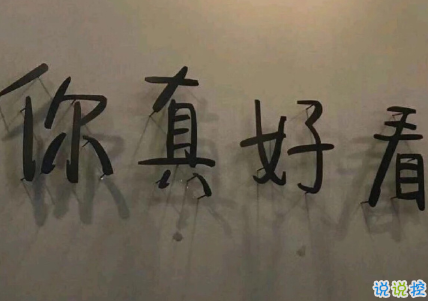 你真好看
说说控